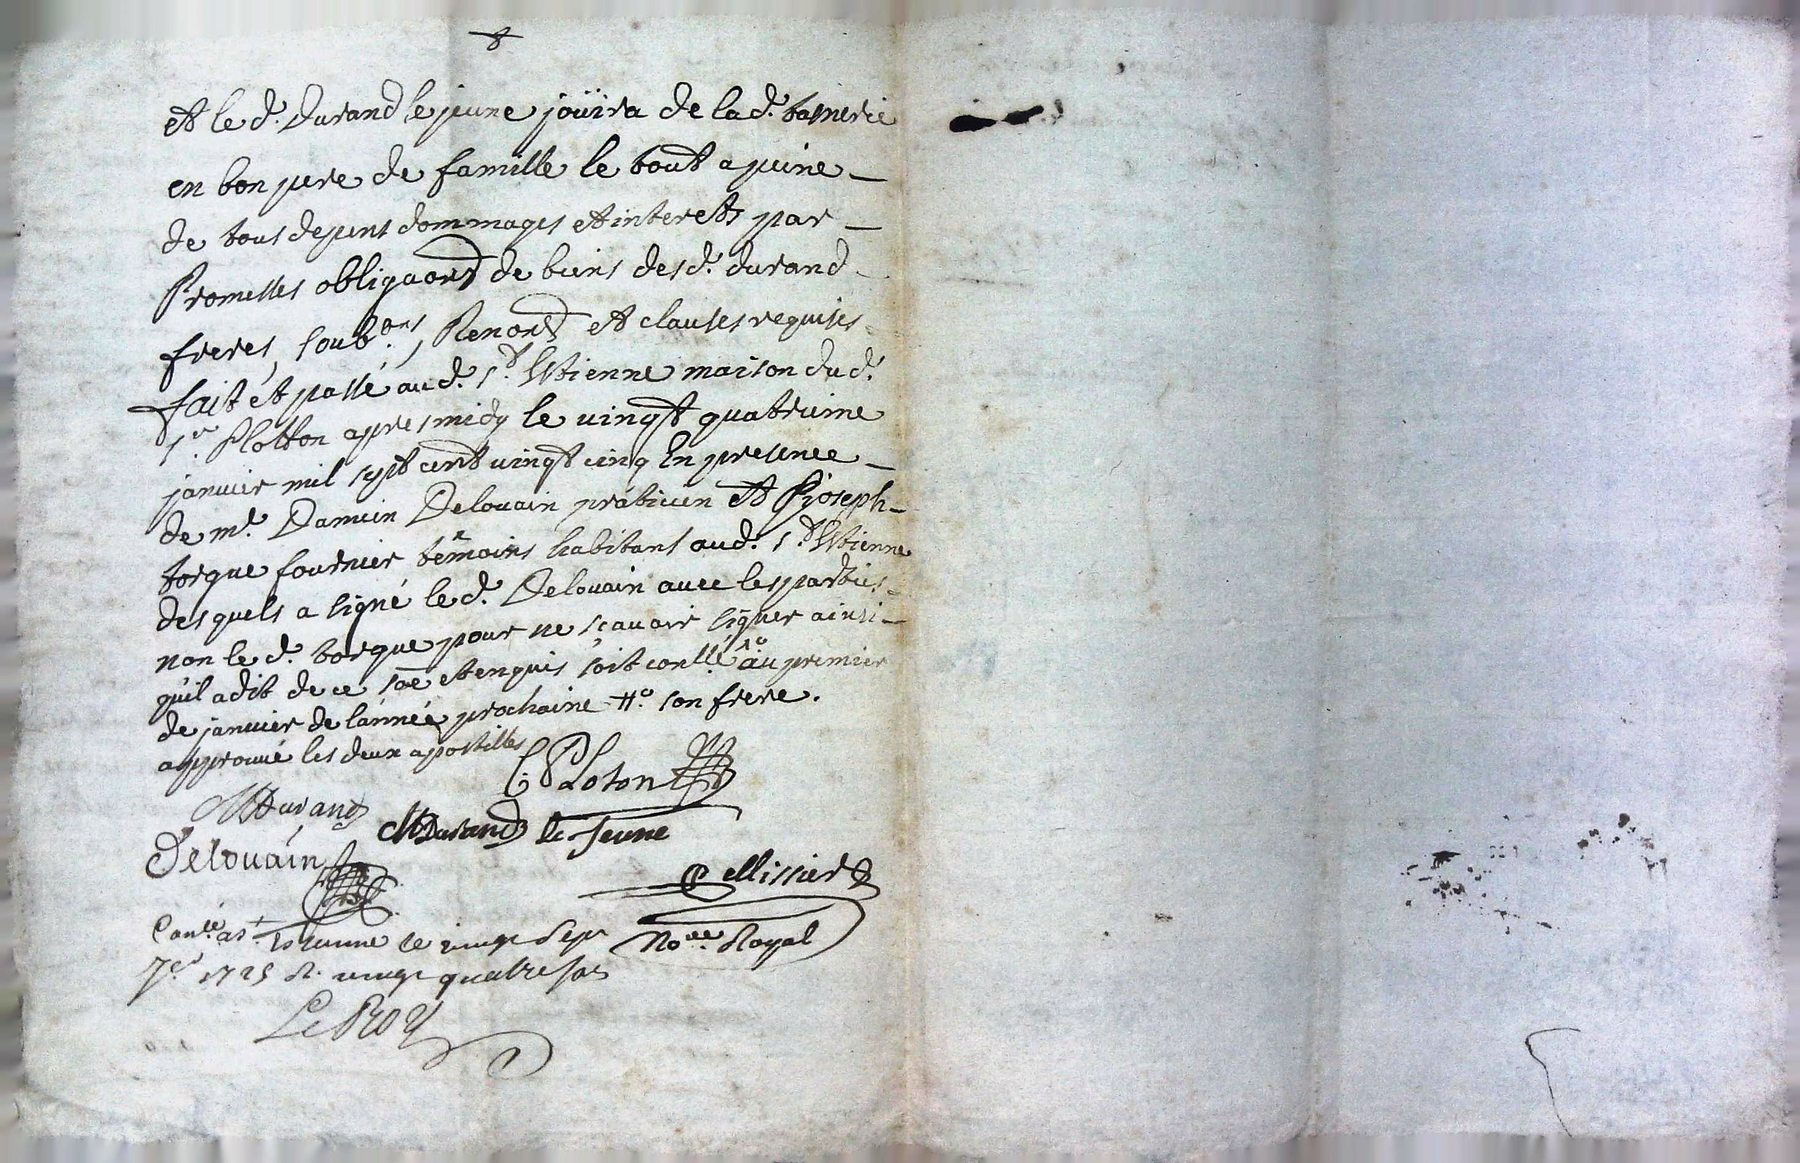 et le d. durand le jeune joüira de lad. tannerie
en bon pere de famille le tout a peine
de tous depens dommages et interets par
Promesses obligaons de biens desd. durand
freres, soub.ons, Renons et clauses requises
fait et passé aud. st. Etienne maison dud.
sr. Plotton apres midy le vingt quatrieme
janvier mil sept cent vingt cinq En presence
de me. Damien Delouain praticien et Joseph
torque fournier témoins habitans aud. st. Etienne
desquels a signé led. Delouain avec les parties
non le d. torque pour ne scavoir signer ainsi
qu'il a dit de ce soe et enquis soit conllé âo. au premier
de janvier de lannée prochaine #o. son frere.
approuué les deux apostilles
C. PLoton
MDurand
MDurand le Jeune
Delouain
Pellissier
Conlle. a St. Etienne le vingt sept
No.re Royal
7er 1725 R. vingt quatre sols
LeROY